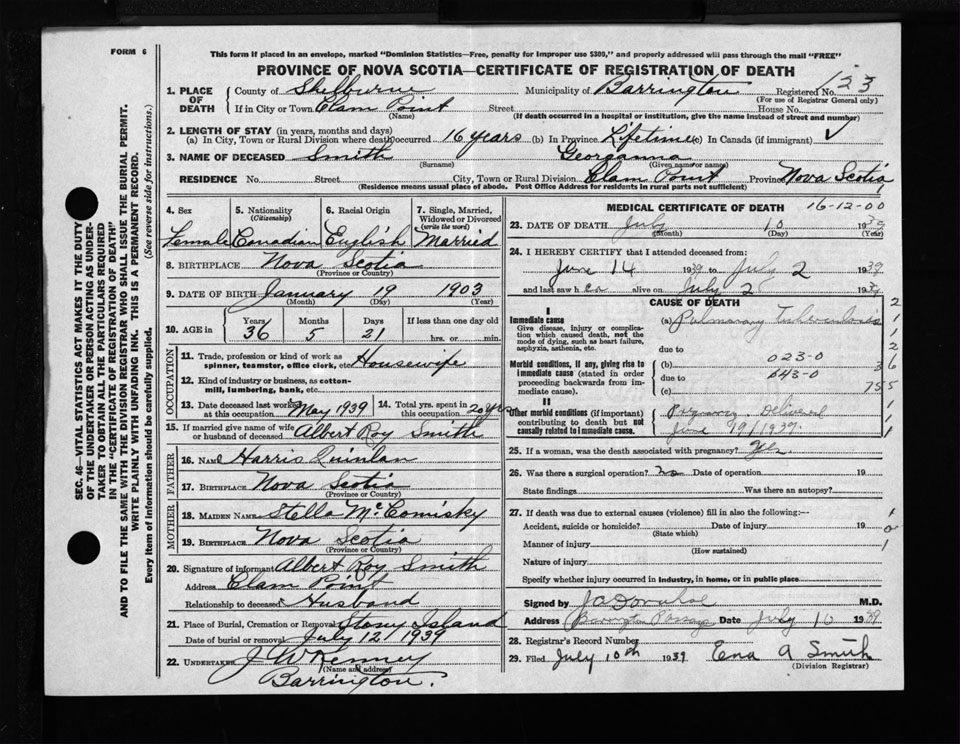 FORM 6
This form if placed in an envelope, marked "Dominion Statistics—Free, penalty for improper use $300," and properly addressed will pass through the mail "FREE"
PROVINCE OF NOVA SCOTIA—CERTIFICATE OF REGISTRATION OF DEATH
SEC. 46—VITAL STATISTICS ACT MAKES IT THE DUTY OF THE UNDERTAKER OR PERSON ACTING AS UNDER-
TAKER TO OBTAIN ALL THE PARTICULARS REQUIRED
IN THE "CERTIFICATE OF REGISTRATION OF DEATH"
AND TO FILE THE SAME WITH THE DIVISION REGISTRAR WHO SHALL ISSUE THE BURIAL PERMIT.
WRITE PLAINLY WITH UNFADING INK. THIS IS A PERMANENT RECORD.
Every item of information should be carefully supplied. (See reverse side for instructions.)
1. PLACE OF DEATH County of Shelburne Municipality of Barrington Registered No. 123
(For use of Registrar General only)
If in City or Town Clam Point Street House No.
(Name) (If death occurred in a hospital or institution, give the name instead of street and number)
2. LENGTH OF STAY (in years, months and days)
(a) In City, Town or Rural Division where death occurred 16 years (b) In Province Lifetime (c) In Canada (if immigrant) ✓
3. NAME OF DECEASED Smith Georganna
(Surname) (Given name or names)
RESIDENCE No. Street City, Town or Rural Division Clam Point Province Nova Scotia
(Residence means usual place of abode. Post Office Address for residents in rural parts not sufficient)
4. Sex Female
5. Nationality (Citizenship) Canadian
6. Racial Origin English
7. Single, Married, Widowed or Divorced (write the word) Married
8. BIRTHPLACE Nova Scotia
(Province or Country)
9. DATE OF BIRTH January 19 1903
(Month) (Day) (Year)
10. AGE in Years 36 Months 5 Days 21 If less than one day old hrs. or min.
OCCUPATION
11. Trade, profession or kind of work as spinner, teamster, office clerk, etc. Housewife
12. Kind of industry or business, as cotton-mill, lumbering, bank, etc.
13. Date deceased last worked at this occupation May 1939 14. Total yrs. spent in this occupation 20 yrs
15. If married give name of wife or husband of deceased Albert Roy Smith
FATHER
16. NAME Harris Quinlan
17. BIRTHPLACE Nova Scotia
(Province or Country)
MOTHER
18. MAIDEN NAME Stella McComisky
19. BIRTHPLACE Nova Scotia
(Province or Country)
20. Signature of informant Albert Roy Smith
Address Clam Point
Relationship to deceased Husband
21. Place of Burial, Cremation or Removal Stony Island
Date of burial or removal July 12 1939
22. UNDERTAKER J W Kenney
(Name and address)
Barrington.
MEDICAL CERTIFICATE OF DEATH 16-12-00
23. DATE OF DEATH July 10 1939
(Month) (Day) (Year)
24. I HEREBY CERTIFY that I attended deceased from:
June 14 1939 to July 2 1939
and last saw h er alive on July 2 1939
CAUSE OF DEATH
I
Immediate cause
Give disease, injury or complication which caused death, not the mode of dying, such as heart failure, asphyxia, asthenia, etc.
(a) Pulmonary Tuberculosis
due to
Morbid conditions, if any, giving rise to immediate cause (stated in order proceeding backwards from immediate cause).
(b) 023-0
due to 643-0
(c) 755
II
Other morbid conditions (if important) contributing to death but not causally related to immediate cause.
Pregnancy. Delivered
June 19/1939.
25. If a woman, was the death associated with pregnancy? yes
26. Was there a surgical operation? no Date of operation 19
State findings Was there an autopsy?
27. If death was due to external causes (violence) fill in also the following:—
Accident, suicide or homicide? Date of injury 19
(State which)
Manner of injury
(How sustained)
Nature of injury
Specify whether injury occurred in industry, in home, or in public place
Signed by M.D.
Address Barrington Passage Date July 10 1939
28. Registrar's Record Number
29. Filed July 10th 1939 Ena A Smith
(Division Registrar)